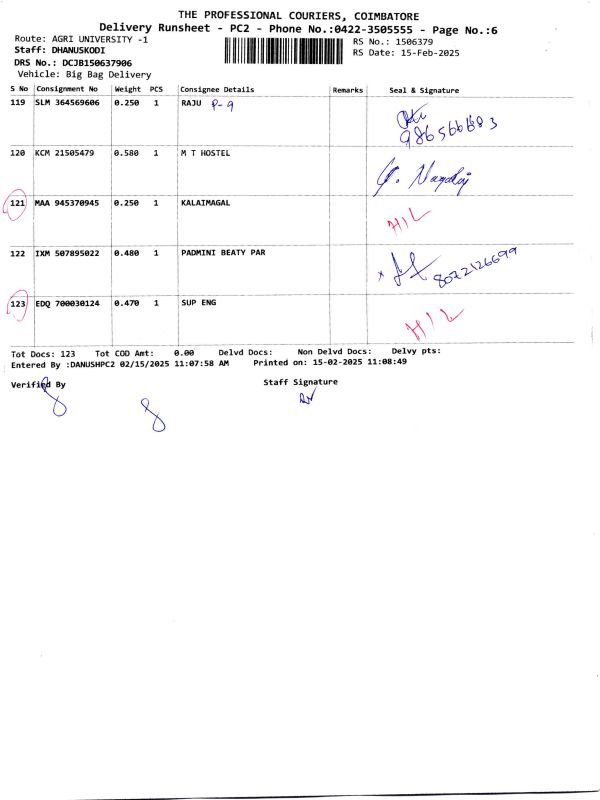 THE PROFESSIONAL COURIERS, COIMBATORE
Delivery Runsheet - PC2 - Phone No.:0422-3505555 - Page No.:6
Route: AGRI UNIVERSITY -1 RS No.: 1506379
Staff: DHANUSKODI RS Date: 15-Feb-2025
DRS No.: DCJB150637906
Vehicle: Big Bag Delivery
S No Consignment No Weight PCS Consignee Details Remarks Seal & Signature
119 SLM 364569606 0.250 1 RAJU P-9
120 KCM 21505479 0.580 1 M T HOSTEL
121 MAA 945370945 0.250 1 KALAIMAGAL H/L
122 IXM 507895022 0.480 1 PADMINI BEATY PAR 8072126699
123 EDQ 700030124 0.470 1 SUP ENG H/L
Tot Docs: 123 Tot COD Amt: 0.00 Delvd Docs: Non Delvd Docs: Delvy pts:
Entered By :DANUSHPC2 02/15/2025 11:07:58 AM Printed on: 15-02-2025 11:08:49
Verified By Staff Signature